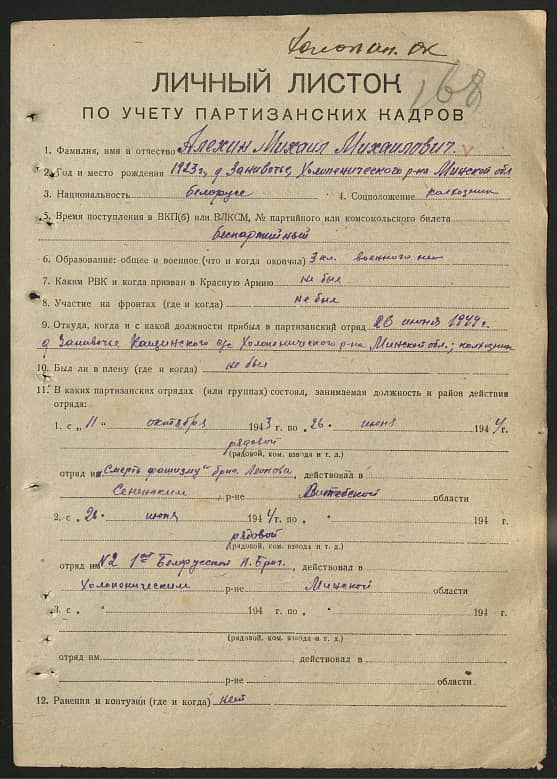 Холопен. ок
168
ЛИЧНЫЙ ЛИСТОК
ПО УЧЕТУ ПАРТИЗАНСКИХ КАДРОВ
1. Фамилия, имя и отчество Алехин Михаил Михайлович.
2. Год и место рождения 1923г, д Занивотье, Холопенического р-на Минской обл
3. Национальность белорус 4. Соцположение колхозник
5. Время поступления в ВКП(б) или ВЛКСМ, № партийного или комсомольского билета
беспартийный
6. Образование: общее и военное (что и когда окончил) 3 кл. военного нет
7. Каким РВК и когда призван в Красную Армию не был
8. Участие на фронтах (где и когда) не был
9. Откуда, когда и с какой должности прибыл в партизанский отряд 26 июня 1944 г.
д Занивотье Кащинского с/с Холопенического р-на Минской обл; колхозник
10. Был ли в плену (где и когда) не был
11. В каких партизанских отрядах (или группах) состоял, занимаемая должность и район действия
отряда:
1. с „ 11 " октября 1943 г. по „ 26 " июня 1944 г.
рядовой
(рядовой, ком. взвода и т. д.)
отряд им. "Смерть фашизму" бриг. Леонова, действовал в
Сенненским р-не Витебской области
2. с „ 26 " июня 1944 г. по „ " 194 г.
рядовой
(рядовой, ком. взвода и т. д.)
отряд им №2 1ой Белорусской П. Бриг. , действовал в
Холопеническим р-не Минской области
3. с „ " 194 г. по „ " 194 г.
(рядовой, ком. взвода и т. д.)
отряд им. , действовал в
р-не области
12. Ранения и контузии (где и когда) нет